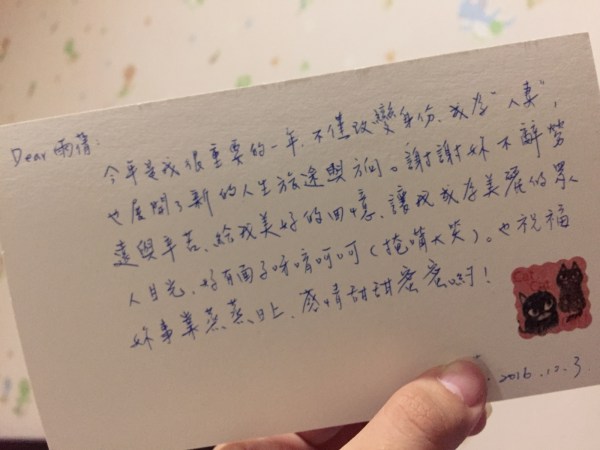 Dear 雨蒨:
今年是我很重要的一年,不僅改變身份、成為"人妻",
也展開了新的人生旅途與方向。謝謝妳不辭勞
遠與辛苦、給我美好的回憶、讓我成為美麗的眾
人目光、好有面子呀唷呵呵(掩嘴大笑)。也祝福
妳事業蒸蒸日上、感情甜甜蜜蜜喲!
2016.12.3